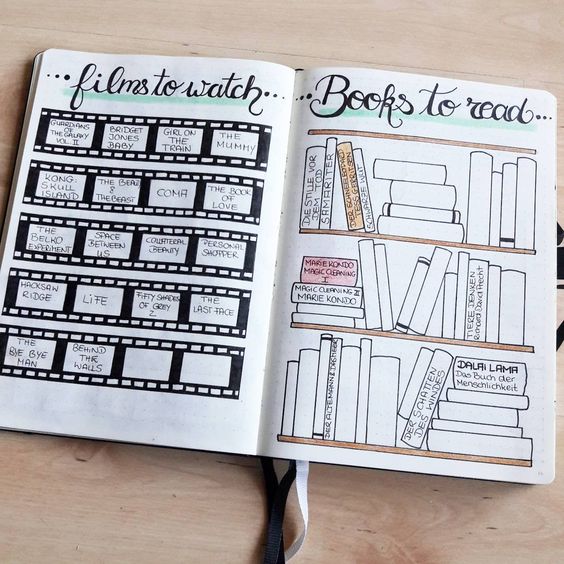 ...films to watch...
GUARDIANS
OF THE
THE GALAXY
VOL. II
BRIDGET
JONES
BABY
GIRL ON
THE
TRAIN
THE
MUMMY
KONG:
SKULL
ISLAND
THE BEAUTY
& THE BEAST
COMA
THE BOOK OF
LOVE
THE
BELKO
EXPERIMENT
SPACE
BETWEEN
US
COLLATERAL
BEAUTY
PERSONAL
SHOPPER
HACKSAW
RIDGE
LiFE
FIFTY SHADES
OF GREY
2
THE
LAST FACE
THE
BYE BYE
MAN
BEHIND
THE
WALLS
...Books to read...
DIE STILLE VOR
DEM TOD
SAMARITER
SCHWARZE FLUT
MARIE KONDO
MAGIC CLEANING
I
MAGIC CLEANING II
MARIE KONDO
TIERE DENKEN
Richard David Precht
DER ALTE MANN &
DER SCHATTEN
DES WINDES
DALAI LAMA
Das Buch der
Menschlichkeit